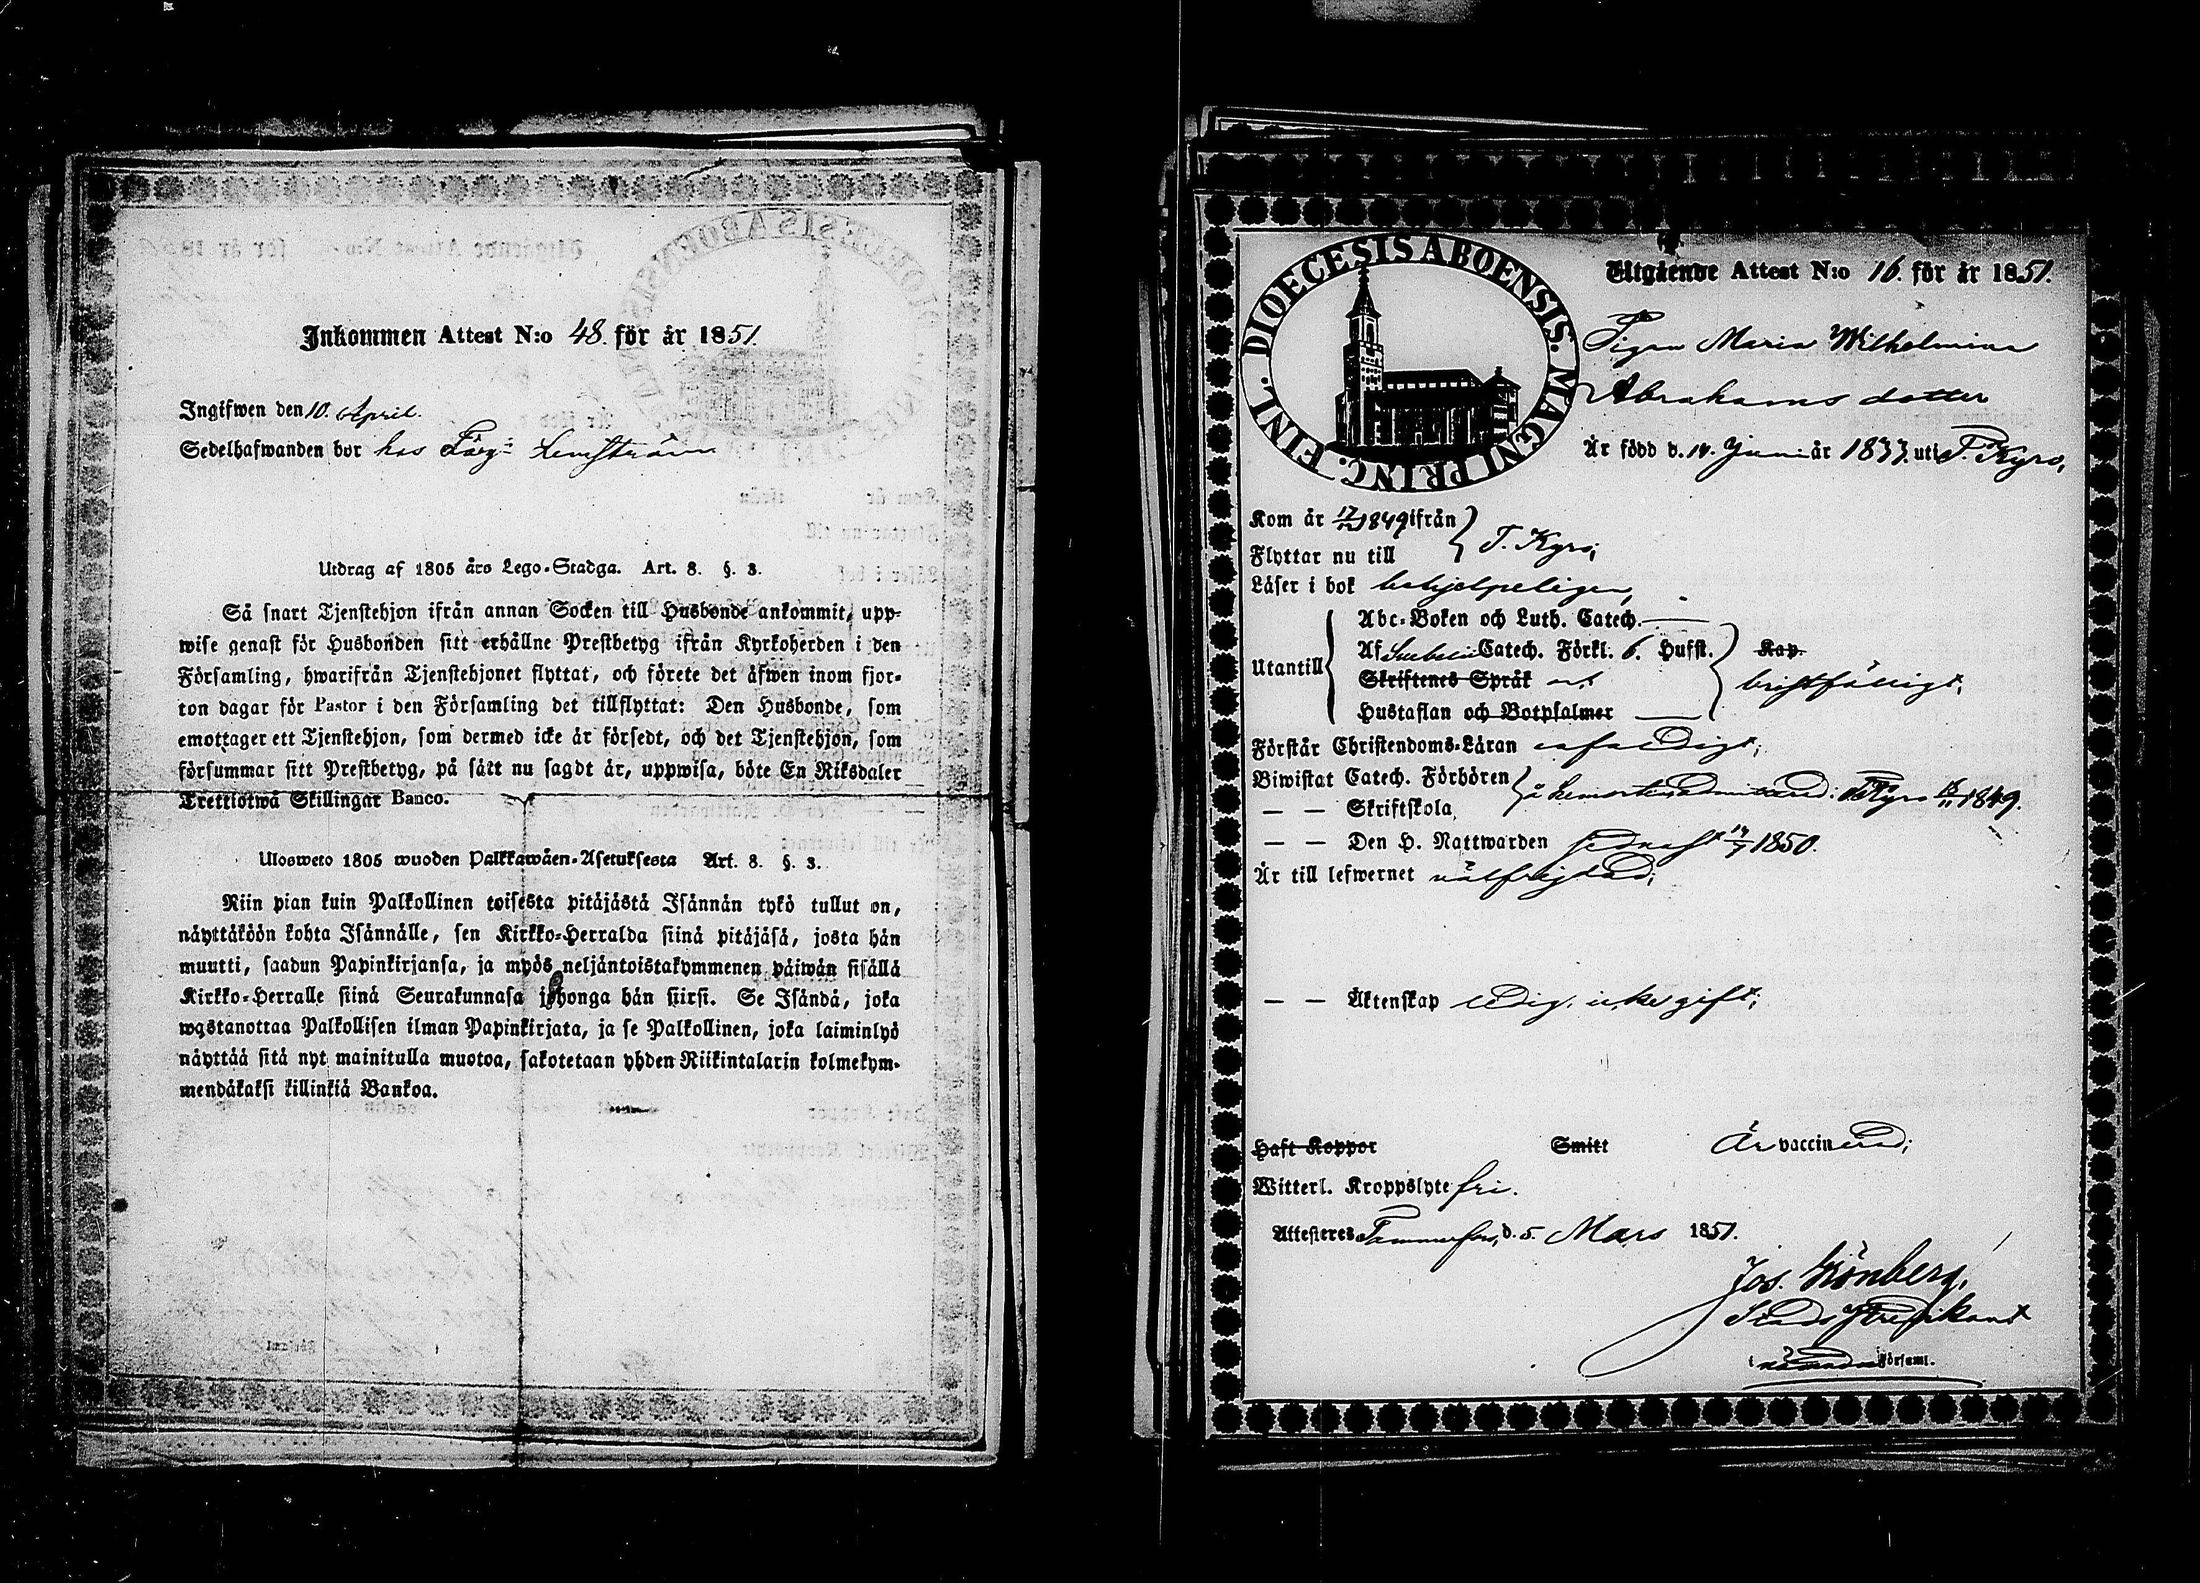 Inkommen Attest N:o 48. för år 1851.
Ingifwen den 10. April.
Sedelhafwanden bor hos Färg:
Utdrag af 1805 års Lego-Stadga. Art. 8. §. 3.
Så snart Tjenstehjon ifrån annan Socken till Husbonde ankommit, upp-
wise genast för Husbonden sitt erhållne Prestbetyg ifrån Kyrkoherden i den
Församling, hwarifrån Tjenstehjonet flyttat, och förete det äfwen inom fjor-
ton dagar för Pastor i den Församling det tillflyttat: Den Husbonde, som
emottager ett Tjenstehjon, som dermed icke är försedt, och det Tjenstehjon, som
försummar sitt Prestbetyg, på sätt nu sagdt är, uppwisa, böte En Riksdaler
Trettiotwå Skillingar Banco.
Ulosweto 1805 wuoden Palkkawäen-Asetuksesta Art. 8. §. 3.
Niin pian kuin Palkollinen toisesta pitäjästä Isännän tykö tullut on,
näyttäköön kohta Isännälle, sen Kirkko-Herralda siinä pitäjäsä, josta hän
muutti, saadun Papinkirjansa, ja myös neljäntoistakymmenen päiwän sisällä
Kirkko-Herralle siinä Seurakunnasa johonga hän siirsi. Se Isändä, joka
wastanottaa Palkollisen ilman Papinkirjata, ja se Palkollinen, joka laiminlyö
näyttää sitä nyt mainitulla muotoa, sakotetaan yhden Riikintalarin kolmekym-
mendäkaksi killinkiä Bankoa.
DIOECESIS ABOENSIS. MAGNI PRINC. FINL.
Utgående Attest N:o 16. för år 1851.
Pigan Maria Wilhelmina
Abrahams dotter
Är född d. 14. Juni år 1833. uti T. Kyro,
Kom år 17/12 1849 ifrån
Flyttar nu till } T. Kyro;
Läser i bok behjelpeligen,
Utantill { Abc-Boken och Luth. Catech. —
Af Svebelii Catech. Förkl. 6. Hufst. } Kap.
Skriftenes Språk bristfälligt,
Hustaflan och Botpsalmer —
Förstår Christendoms-Läran enfaldigt;
Biwistat Catech. Förhören
— — Skriftskola, } Kyro 1849.
— — Den H. Nattwarden sednast 1850.
Är till lefwernet välfrejdad;
— — Äktenskap ledig. icke gift;
Haft Koppor Smitt Är vaccinerad;
Witterl. Kroppslyte fri.
Attesteres Tammerfors, d. 5. Mars 1851.
Jos. Grönberg,
Stads Predikant
i nämnda Församl.